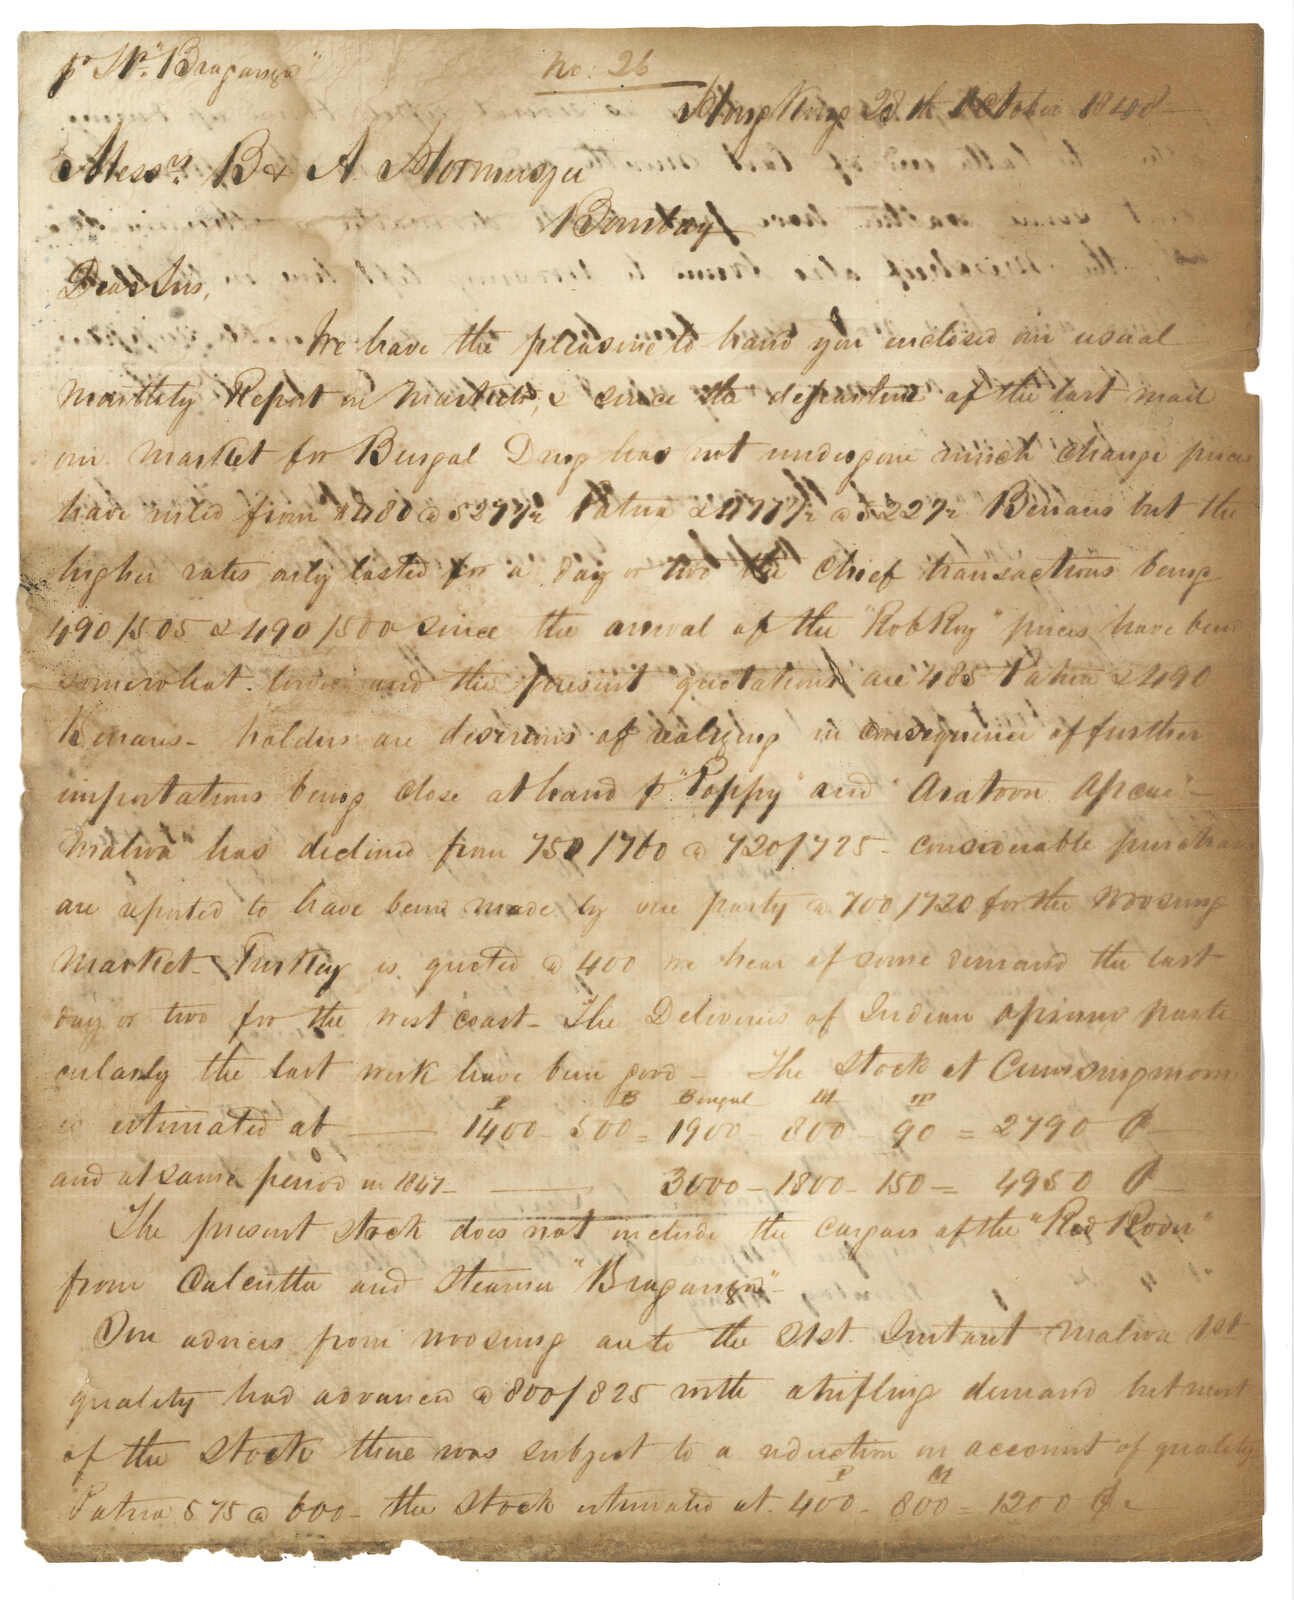 pr Str. "Braganza"
No: 26
Hong Kong 28th October 1848
Messrs. B & A Hormusjee
Bombay
Dear Sirs,
We have the pleasure to hand you enclosed our usual
Monthly Report on Markets, & since the departure of the last mail
our market for Bengal Drug has not undergone much change prices
have ruled from $480 @ 527½ Patna & 477½ @ 522½ Benaris but the
higher rates only lasted for a day or two the chief transactions being
490/505 & 490/500 since the arrival of the "Rob Roy" prices have been
somewhat lower and the present quotations are 485 Patna & 490
Benaris - holders are desirous of realizing in consequence of further
importations being close at hand pr "Poppy" and "Aratoon Apcar" -
Malwa has declined from 750/760 @ 720/725 - considerable purchases
are reported to have been made by one party @ 700/720 for the Woosung
Market - Turkey is quoted @ 400 we hear of some demand the last
day or two for the west coast - The Deliveries of Indian opium parti
cularly the last week have been good - The stock at Cumsingmoon
is estimated at — P 1400 - B 500 = Bengal 1900 - M 800 - T 90 = 2790 C
and at same period in 1847 - — 3000 - 1800 - 150 = 4950 C
The present stock does not include the cargoes of the "Red Rover"
from Calcutta and steamer "Braganza" -
Our advices from Woosung are to the 21st. Instant Malwa 1st
quality had advanced @ 800/825 with a trifling demand but most
of the stock there was subject to a reduction on account of quality
Patna 575 @ 600 - the stock estimated at P 400 - M 800 = 1200 C